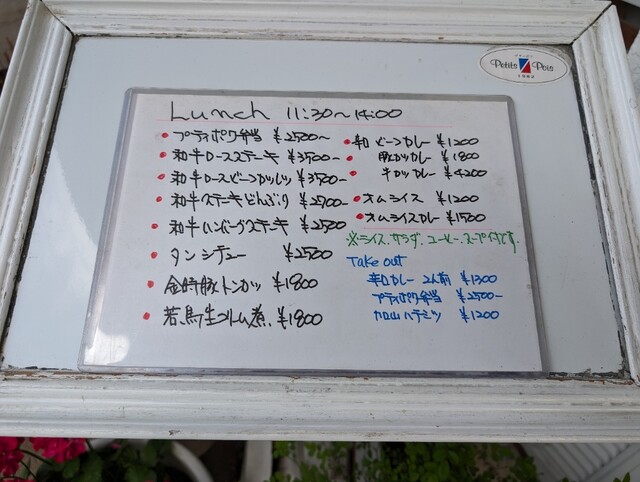 Petits Pois
Lunch 11:30~14:00
プティポワ弁当 ¥2500~
和牛ロースステーキ ¥3500~
和牛ロースビーフカツレツ ¥3500~
和牛ステーキどんぶり ¥2700~
和牛ハンバーグステーキ ¥2500
タンシチュー ¥2500
金時豚トンカツ ¥1800
若鳥生クリーム煮 ¥1800
辛口ビーフカレー ¥1200
豚カツカレー ¥1800
牛カツカレー ¥4200
オムライス ¥1200
オムライスカレー ¥1500
※ライス、サラダ、コーヒー、スープ付です。
Take out
辛口カレー 2人前 ¥1300
プティポワ弁当 ¥2500~
¥1200